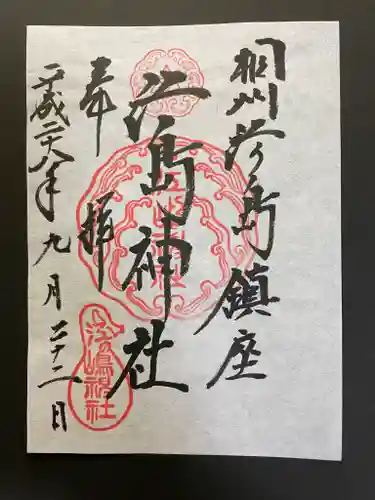 相州江ノ島鎮座
江島神社
奉拝
平成二十八年九月二十二日
江嶋神社